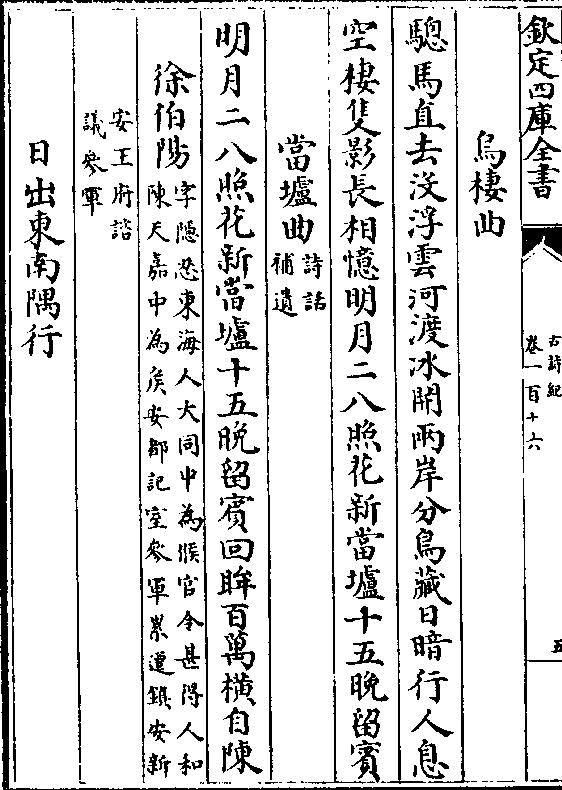 欽定四庫全書
古詩紀
卷一百十六
五
烏棲曲
驄馬直去沒浮雲河渡冰開兩岸分烏藏日暗行人息
空棲隻影長相憶明月二八照花新當壚十五晚留賓
當壚曲
詩話
補遺
明月二八照花新當壚十五晚留賓回眸百萬横自陳
徐伯陽
字隱忍東海人大同中為候官令甚得人和
陳天嘉中為侯安都記室參軍累遷鎮安新
安王府諮
議參軍
日出東南隅行